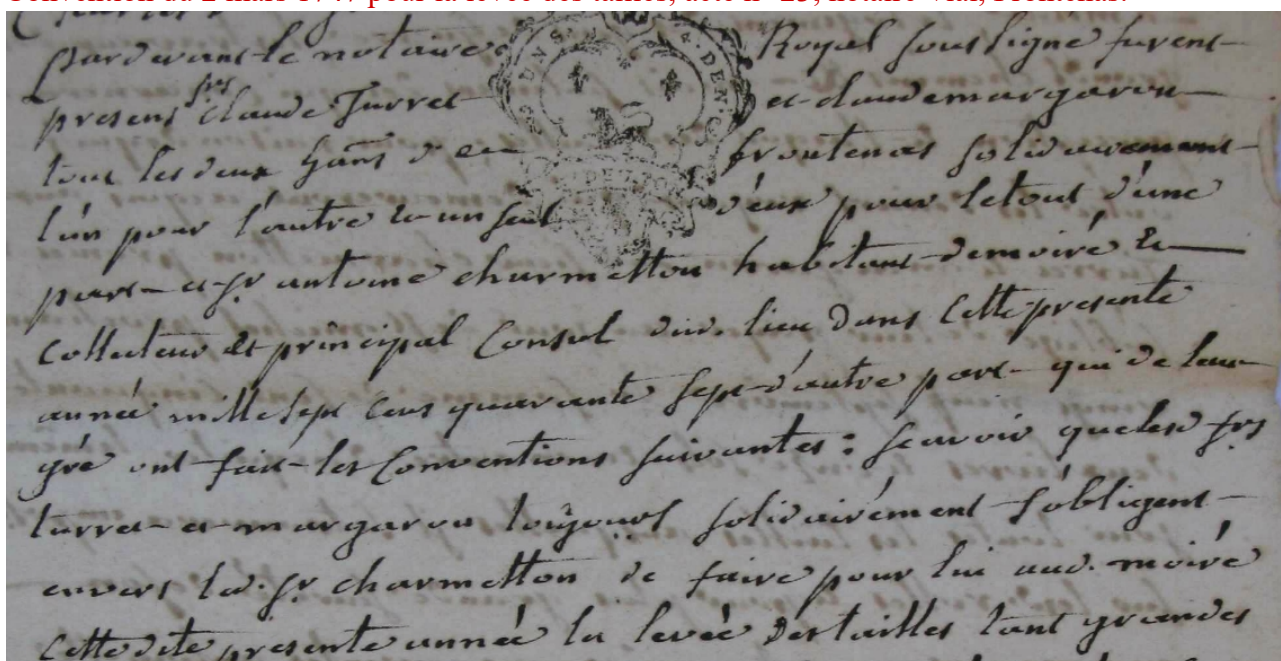 Convention du 2 mars 1747 pour la levée des tailles, acte n° 25, notaire Vial, Frontenas.
pardevant le notaire Royal soussigné furent
present srs Claude Turret et claude margaron
tous les deux frontenas solidairement
l'un pour l'autre un seul d'eux pour letout d'une
part et sr antoine charmetton habitant demoiré &
Collecteur et principal Consul dud. lieu dans Cette presente
année mille sept cens quarante sept d'autre part qui de leur
gré ont fait les Conventions suivantes : scavoir queles srs
turret et margaron toujours solidairement s'obligent
envers led. sr charmetton de faire pour lui aud. moiré
Cette dite presente année la levée destailles tant grandes